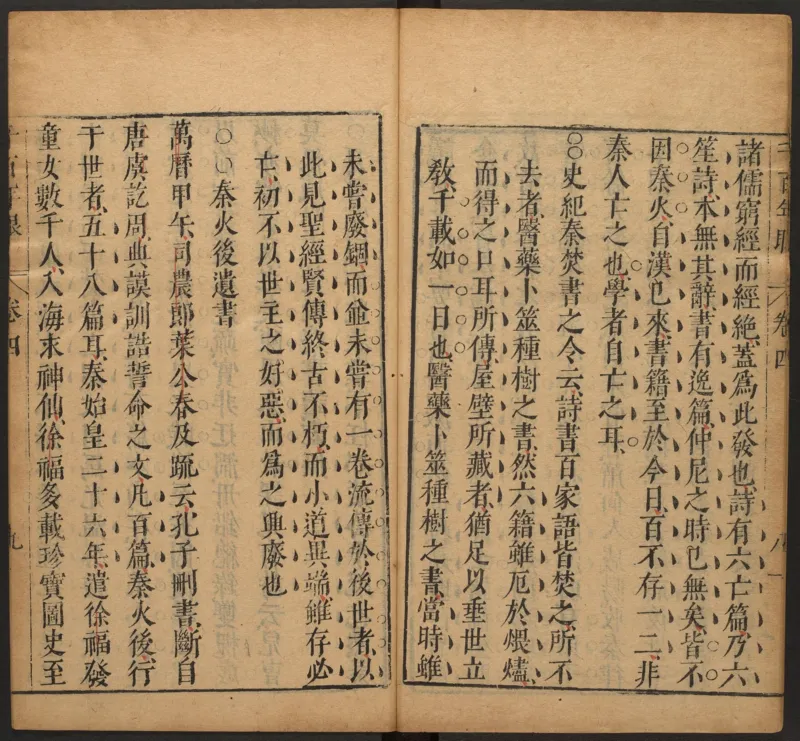 諸儒窮經而經絕蓋為此發也詩有六亡篇乃六
笙詩本無其辭書有逸篇仲尼之時已無矣皆不
因秦火自漢已來書籍至於今日百不存一二非
秦人亡之也學者自亡之耳
史紀秦焚書之令云詩書百家語皆焚之所不
去者醫藥卜筮種樹之書然六籍雖厄於煨燼
而得之口耳所傳屋壁所藏者猶足以垂世立
教千載如一日也醫藥卜筮種樹之書當時雖
卷四
未嘗廢錮而並未嘗有一卷流傳於後世者以
此見聖經賢傳終古不朽而小道異端雖存必
亡初不以世主之好惡而為之興廢也
秦火後遺書
萬曆甲午司農郎葉公春及疏云孔子刪書斷自
唐虞訖周典謨訓誥誓命之文凡百篇秦火後行
于世者五十八篇耳秦始皇二十六年遣徐福發
童女數千人入海求神仙徐福多載珍寶圖史至
卷四
九